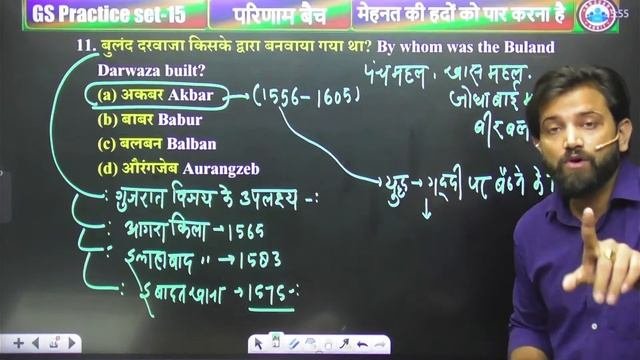 GS Practice set-15
परिणाम बैच
मेहनत की हदों को पार करना है
11. बुलंद दरवाजा किसके द्वारा बनवाया गया था? By whom was the Buland
Darwaza built?
(a) अकबर Akbar → (1556-1605)
(b) बाबर Babur
(c) बलबन Balban
(d) औरंगजेब Aurangzeb
पंचमहल. खास महल.
जोधा बाई
बीरबल
युद्ध → गद्दी पर बैठने के
: गुजरात विजय के उपलक्ष्य -:
: आगरा किला → 1565
: इलाहाबाद " → 1583
: इबादतखाना → 1575 -: